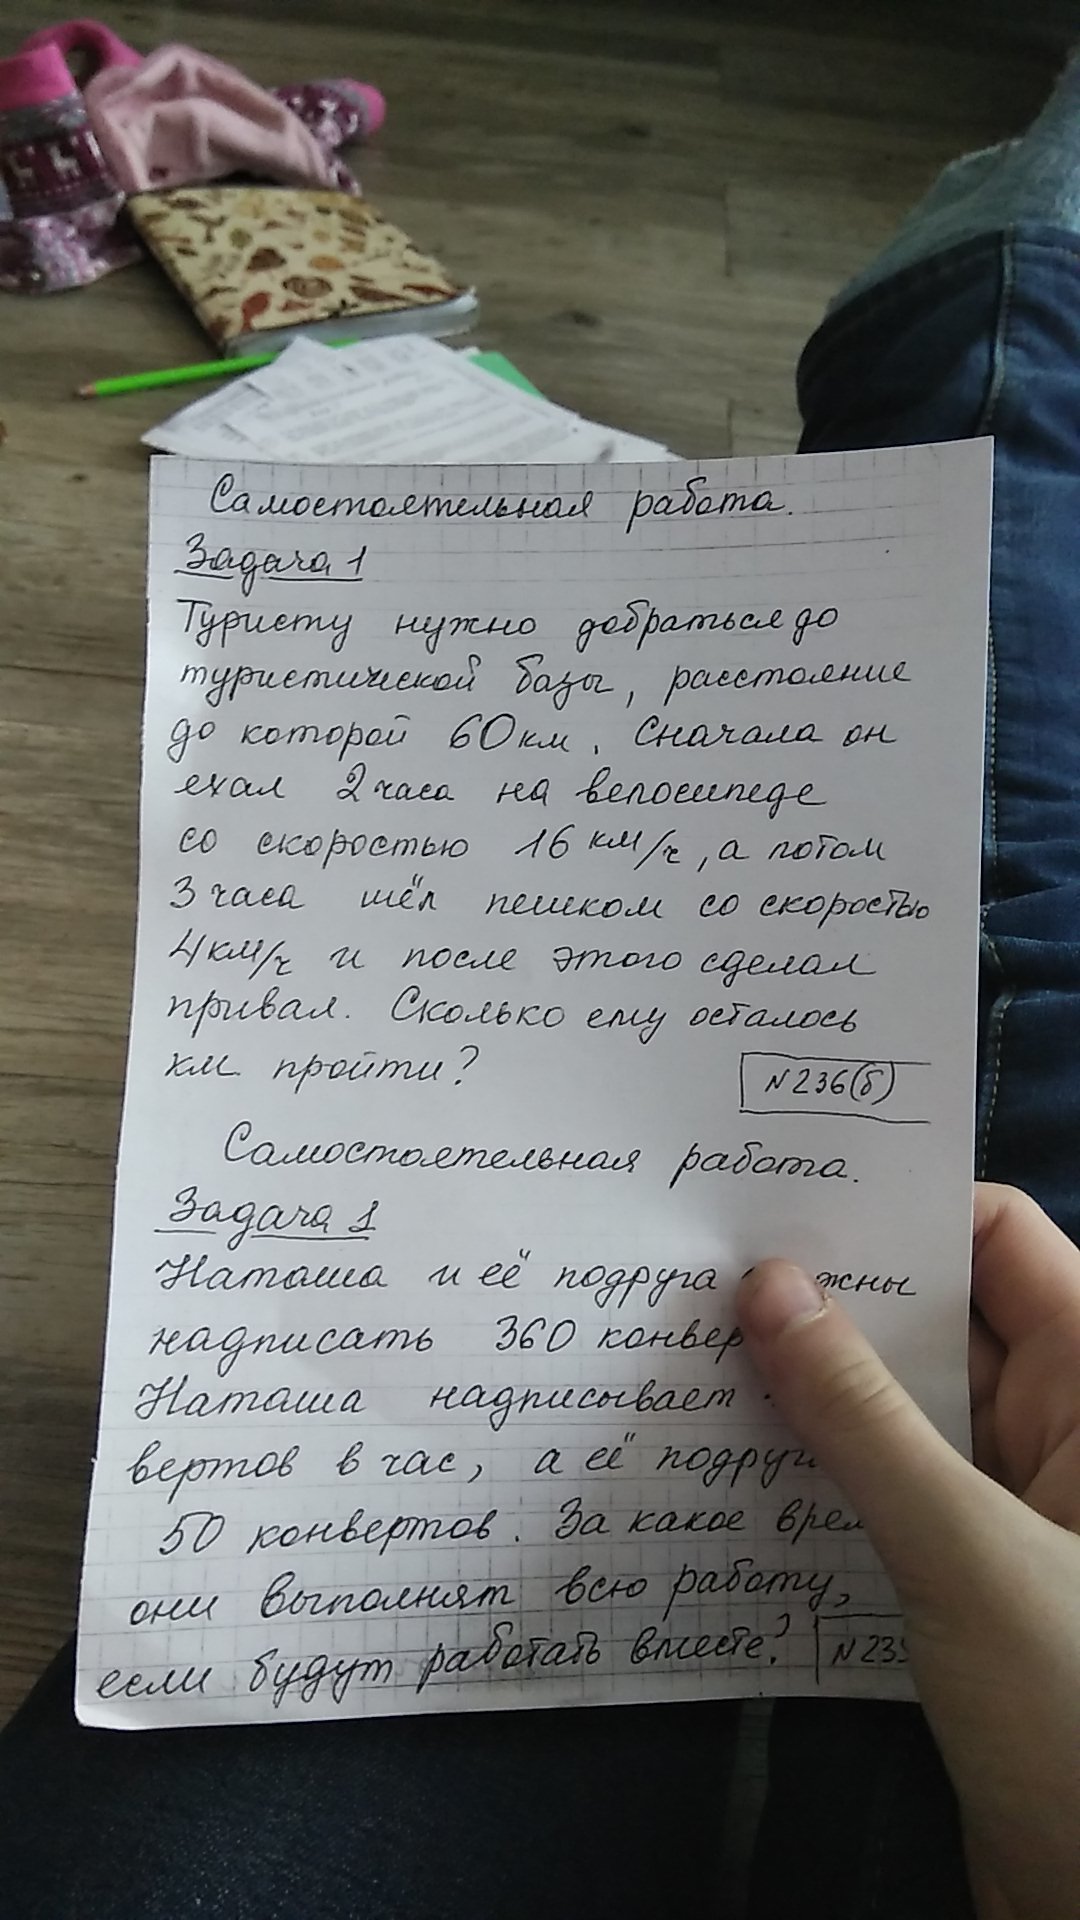 Самостоятельная работа.
Задача 1
Туристу нужно добраться до
туристической базы, расстояние
до которой 60 км. Сначала он
ехал 2 часа на велосипеде
со скоростью 16 км/ч, а потом
3 часа шёл пешком со скоростью
4 км/ч и после этого сделал
привал. Сколько ему осталось
км пройти?
N 236(б)
Самостоятельная работа.
Задача 1
Наташа и её подруга
надписать 360
Наташа надписывает
вертов в час, а её
50 конвертов. За какое
они выполнят всю работу,
если будут работать вместе?